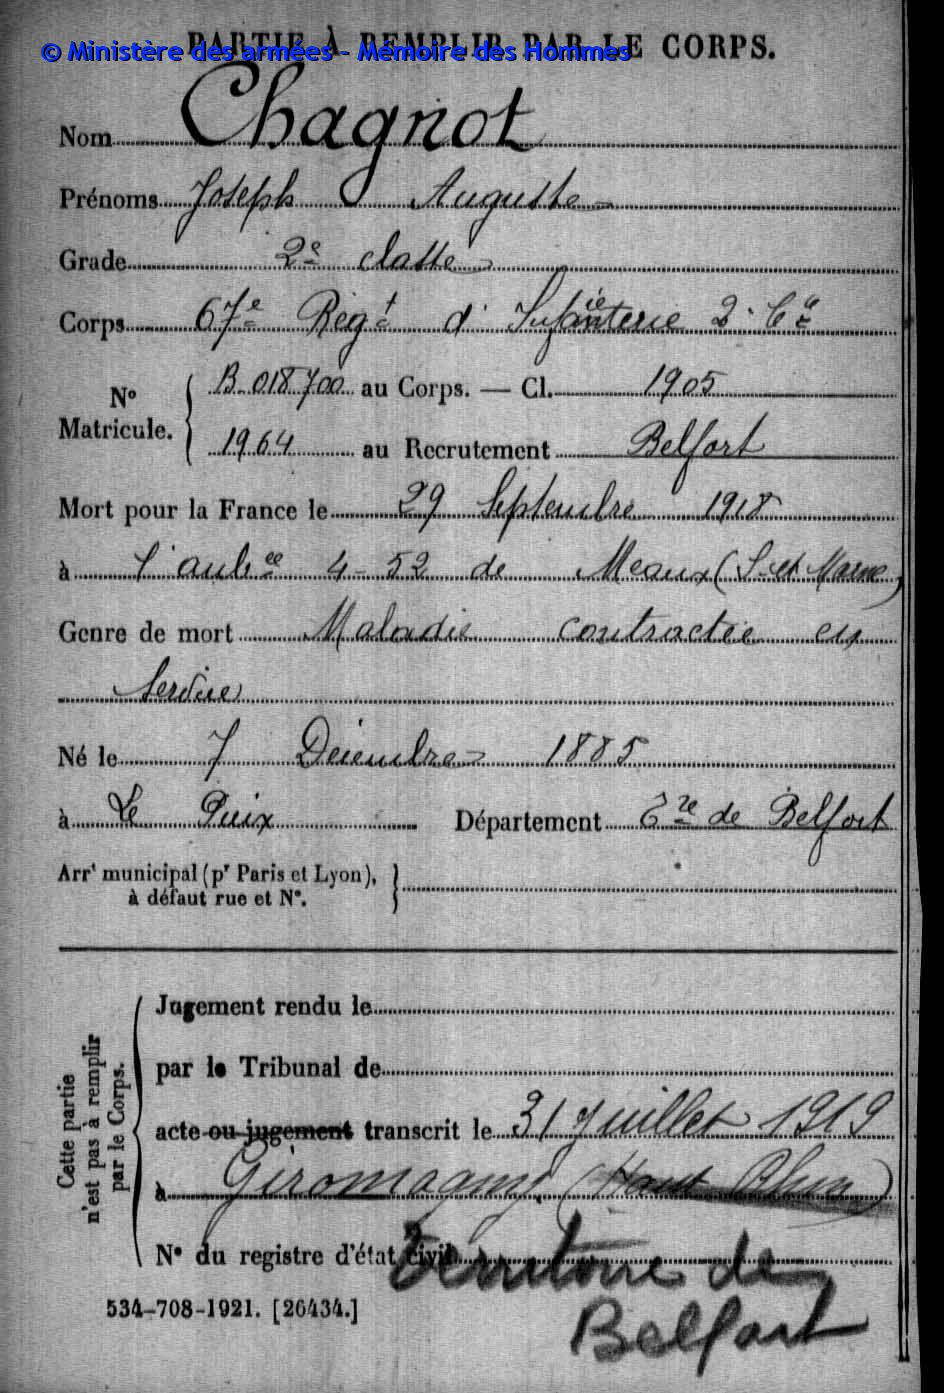 PARTIE À REMPLIR PAR LE CORPS.
© Ministère des armées - Mémoire des Hommes
Nom Chagnot
Prénoms Joseph Auguste
Grade 2e classe
Corps 67e Régt d'Infanterie 2e Cie
No Matricule. { B.018700 au Corps. — Cl. 1905
1964 au Recrutement Belfort
Mort pour la France le 29 Septembre 1918
à l'aubce 4-52 de Meaux (S-et Marne)
Genre de mort Maladie contractée en
service
Né le 7 Décembre 1885
à Le Puix Département Tre de Belfort
Arrt municipal (pr Paris et Lyon),
à défaut rue et No.
Cette partie
n'est pas à remplir
par le Corps.
Jugement rendu le
par le Tribunal de
acte ou jugement transcrit le 31 Juillet 1919
à Giromagny (Haut Rhin)
No du registre d'état civil
Territoire de
Belfort
534-708-1921. [26434.]